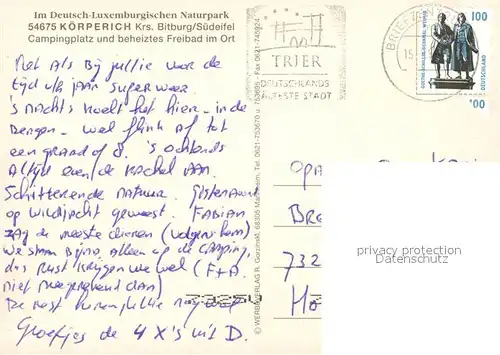 Im Deutsch-Luxemburgischen Naturpark
54675 KÖRPERICH Krs. Bitburg/Südeifel
Campingplatz und beheiztes Freibad im Ort
Net als Bij jullie voor de
tijd v/h jaar super weer
's nachts koelt het hier in de
Bergen wel flink af tot
een graad of 8. 's ochtends
Altijd even de kachel AAN.
Schitterende natuur. Gisteravond
op wildjacht geweest. FABIAN
zag de meeste dieren (volgens hem)
We staan Bijna Alleen op de camping,
dus Rust krijgen we wel (F+A
niet meegerekend dan)
De Rest horen jullie nog wel
Groetjes de 4 X's uit D.
© WERBEVERLAG R. Gorzinski, 68305 Mannheim, Tel. 0621-753670 u. 753695 - Fax 0621-745924
TRIER
DEUTSCHLANDS
ÄLTESTE STADT
BRIEFZENT
15
100
GOETHE-SCHILLER-DENKMAL WEIMAR
DEUTSCHLAND
100
OPA
BRE
732
HO
privacy protection
Datenschutz